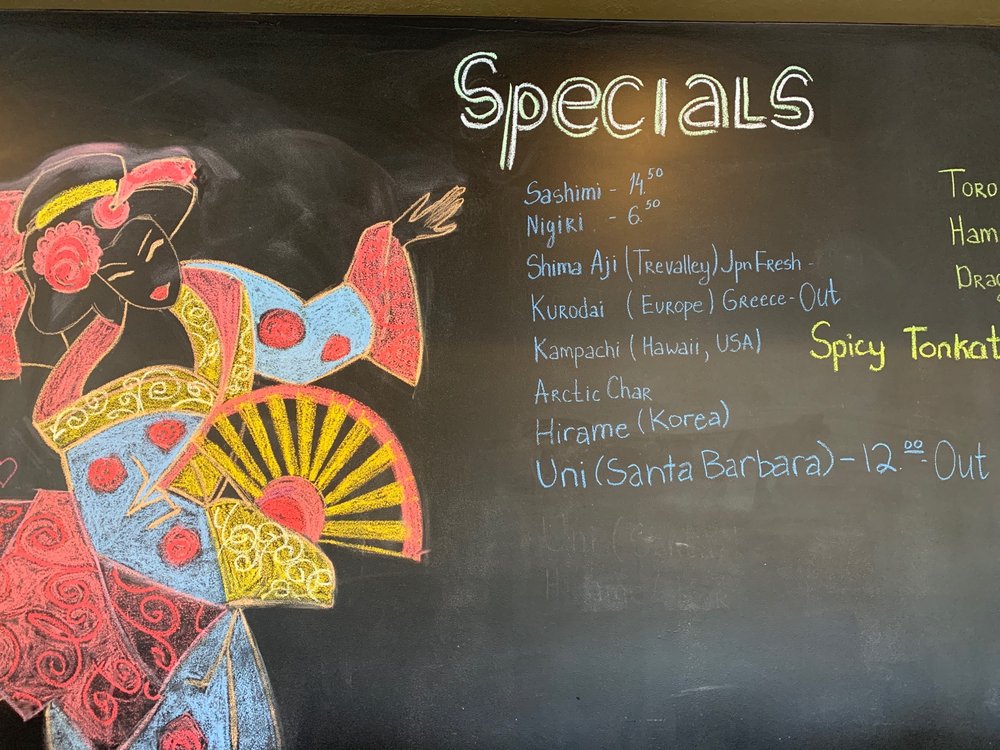 Specials
Sashimi - 14.50
Nigiri - 6.50
Shima Aji (Trevalley) Jpn Fresh -
Kurodai (Europe) Greece - Out
Kampachi (Hawaii, USA)
Arctic Char
Hirame (Korea)
Uni (Santa Barbara) - 12.00 Out
Toro
Ham
Drag
Spicy Tonkat